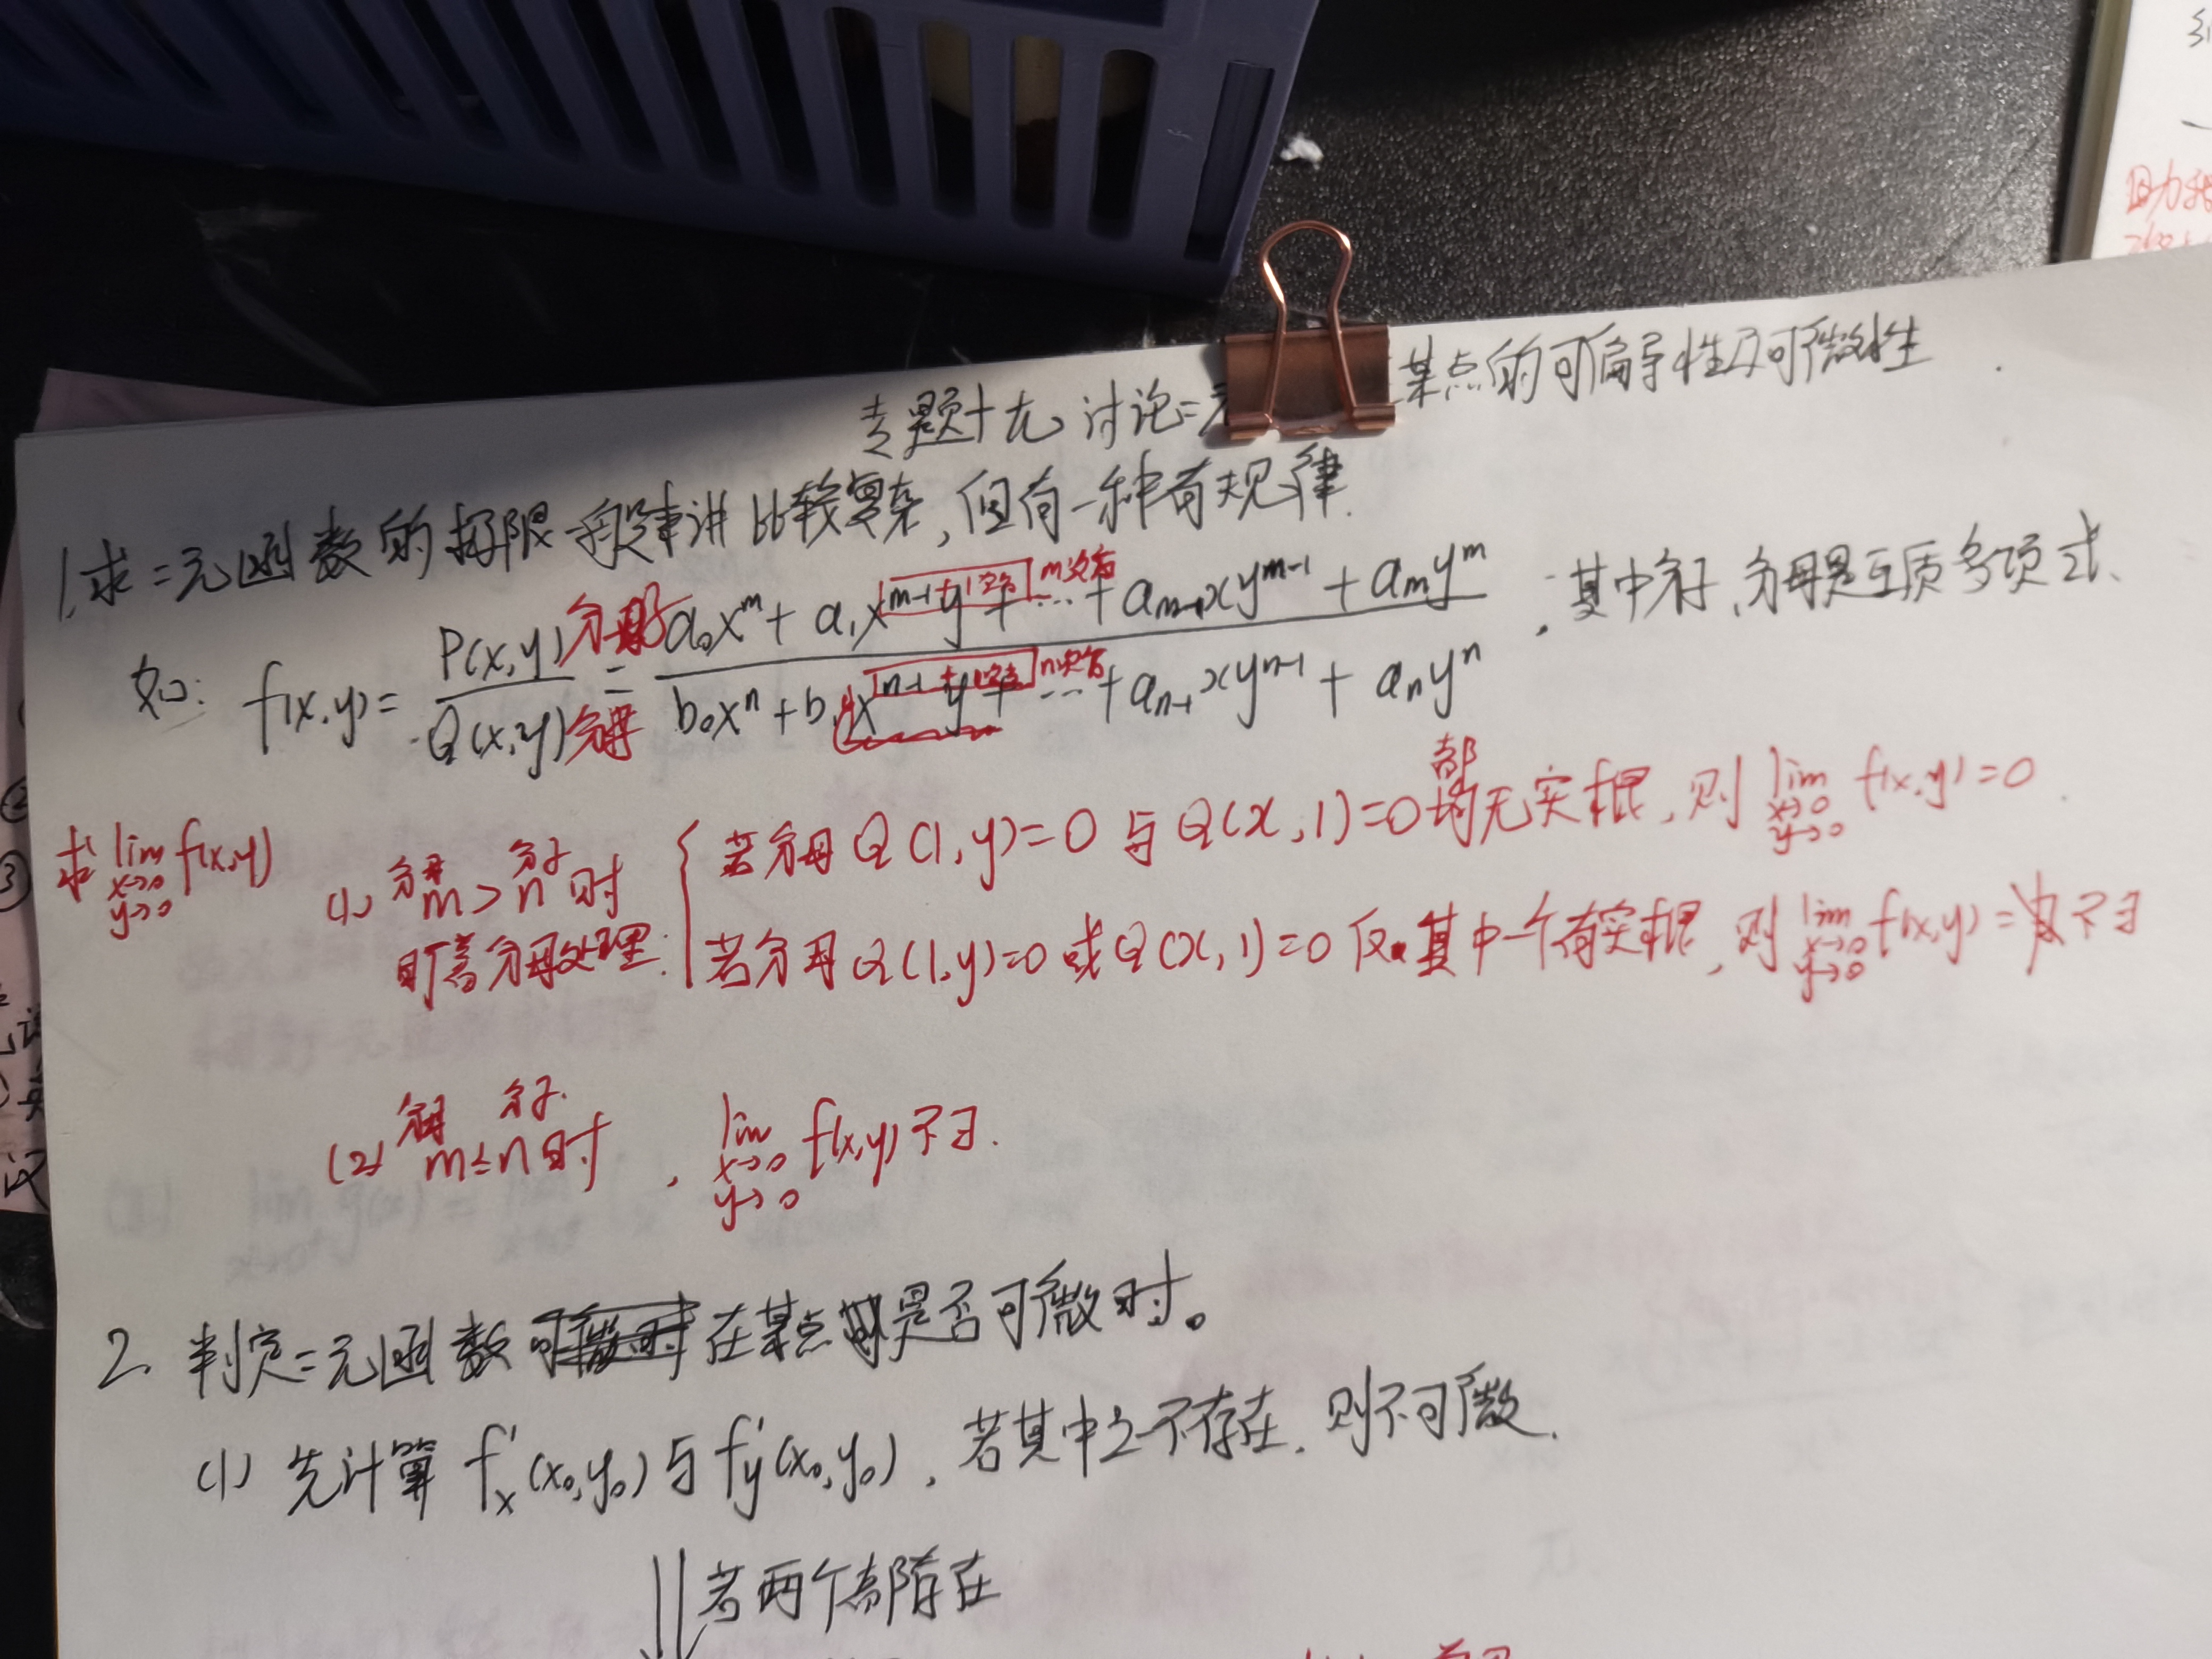 专题十九 讨论二元 某点的可偏导性及可微性
1.求二元函数的极限一般来讲比较复杂,但有一种有规律.
如: f(x,y)= P(x,y) 分子 / Q(x,y) 分母 = a₀xᵐ + a₁xᵐ⁻¹y + … + aₘ₋₁xyᵐ⁻¹ + aₘyᵐ / b₀xⁿ + b₁xⁿ⁻¹y + … + aₙ₋₁xyⁿ⁻¹ + aₙyⁿ , 其中分子、分母是互质多项式、
m次方
n次方
求 lim x→0 y→0 f(x,y)
(1) 分母 m > 分子 n 时 { 若分母 Q(1,y)=0 与 Q(x,1)=0 都均无实根, 则 lim x→0 y→0 f(x,y)=0.
分母处理: 若分母 Q(1,y)=0 或 Q(x,1)=0 其中一个有实根, 则 lim x→0 y→0 f(x,y)= 不∃
(2) 分母 m≤ 分子 n 时 , lim x→0 y→0 f(x,y) 不∃.
2. 判定二元函数 在某点是否可微时。
(1) 先计算 f'x(x₀,y₀) 与 f'y(x₀,y₀) , 若其中之一不存在. 则不可微.
⇓ 若两个都存在